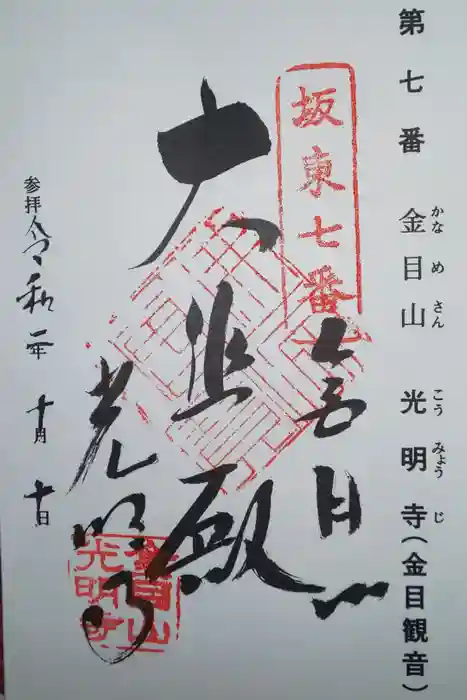 第七番 金目山 光明寺(金目観音)
かなめさん こうみょうじ
坂東七番
金目山
大悲殿
光明寺
金目山
光明寺
参拝 令和二年 十月 十日